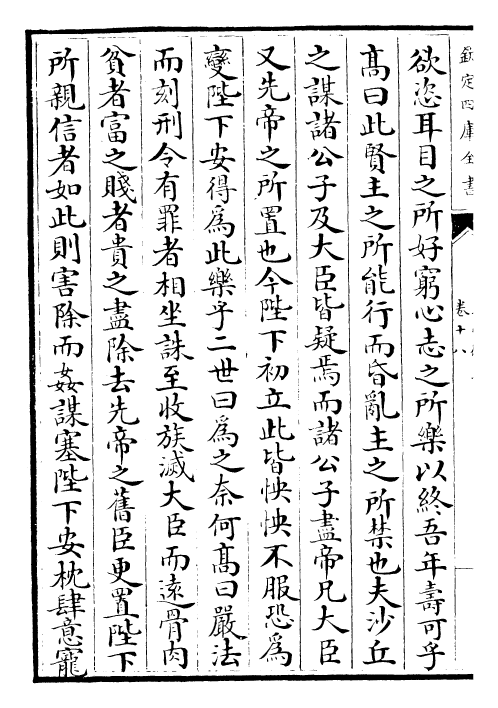 欽定四庫全書
卷十八
欲恣耳目之所好窮心志之所樂以終吾年壽可乎
髙曰此賢主之所能行而昏亂主之所禁也夫沙丘
之謀諸公子及大臣皆疑焉而諸公子盡帝兄大臣
又先帝之所置也今陛下初立此皆怏怏不服恐為
變陛下安得為此樂乎二世曰為之奈何髙曰嚴法
而刻刑令有罪者相坐誅至收族滅大臣而逺骨肉
貧者富之賤者貴之盡除去先帝之舊臣更置陛下
所親信者如此則害除而姦謀塞陛下安枕肆意寵